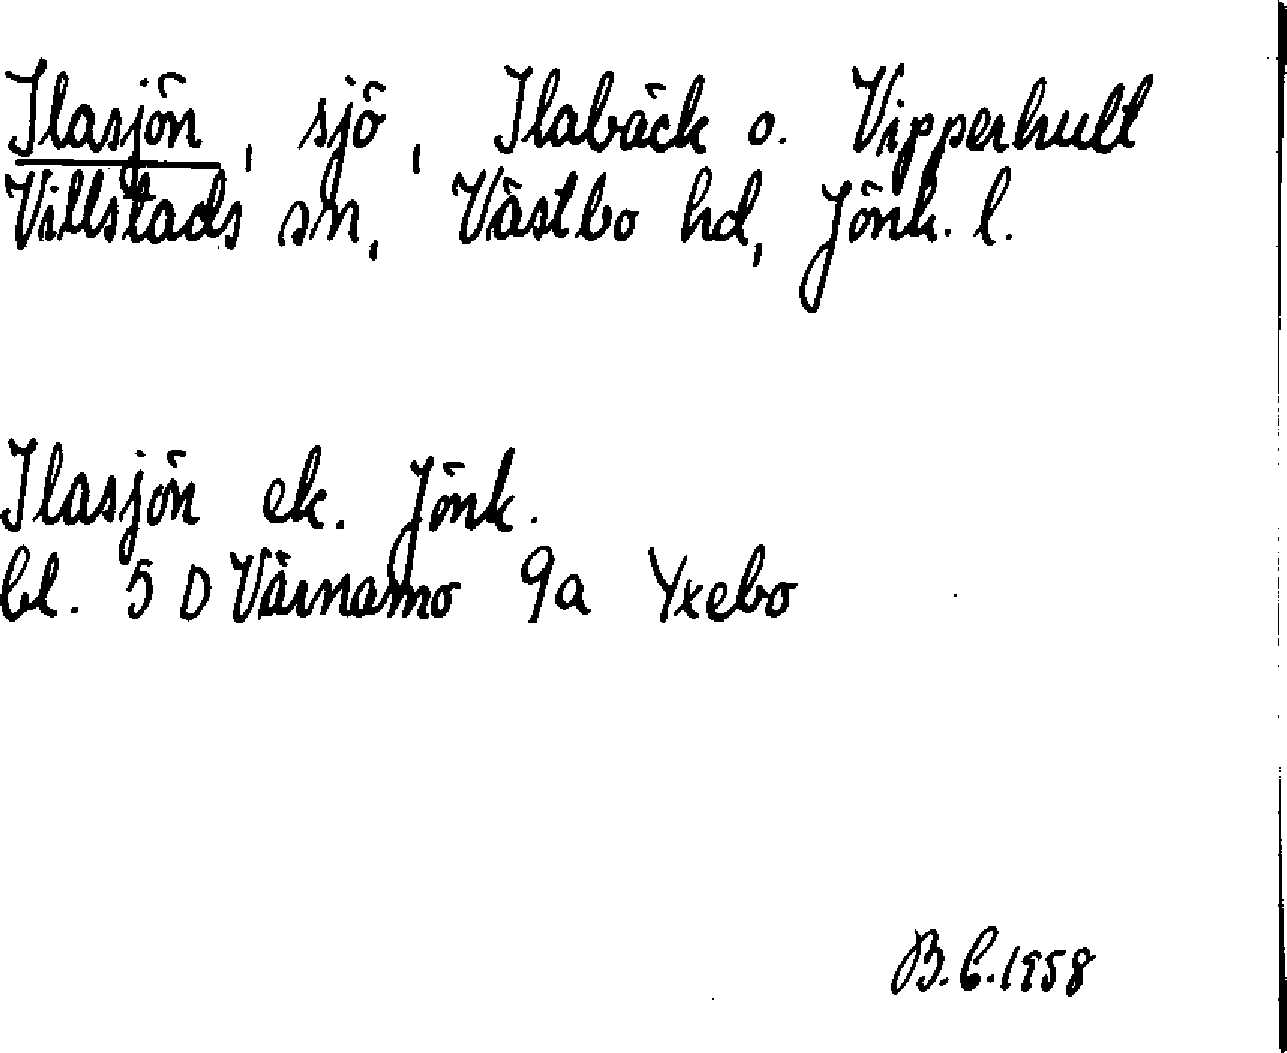 Ilasjön, sjö, Ilabäck o. Vipperhult
Villstads sn, Västbo hd, Jönk. l.
Ilasjön ek. Jönk.
bl. 5 D Värnamo 9a Yxebo
B.C. 1958